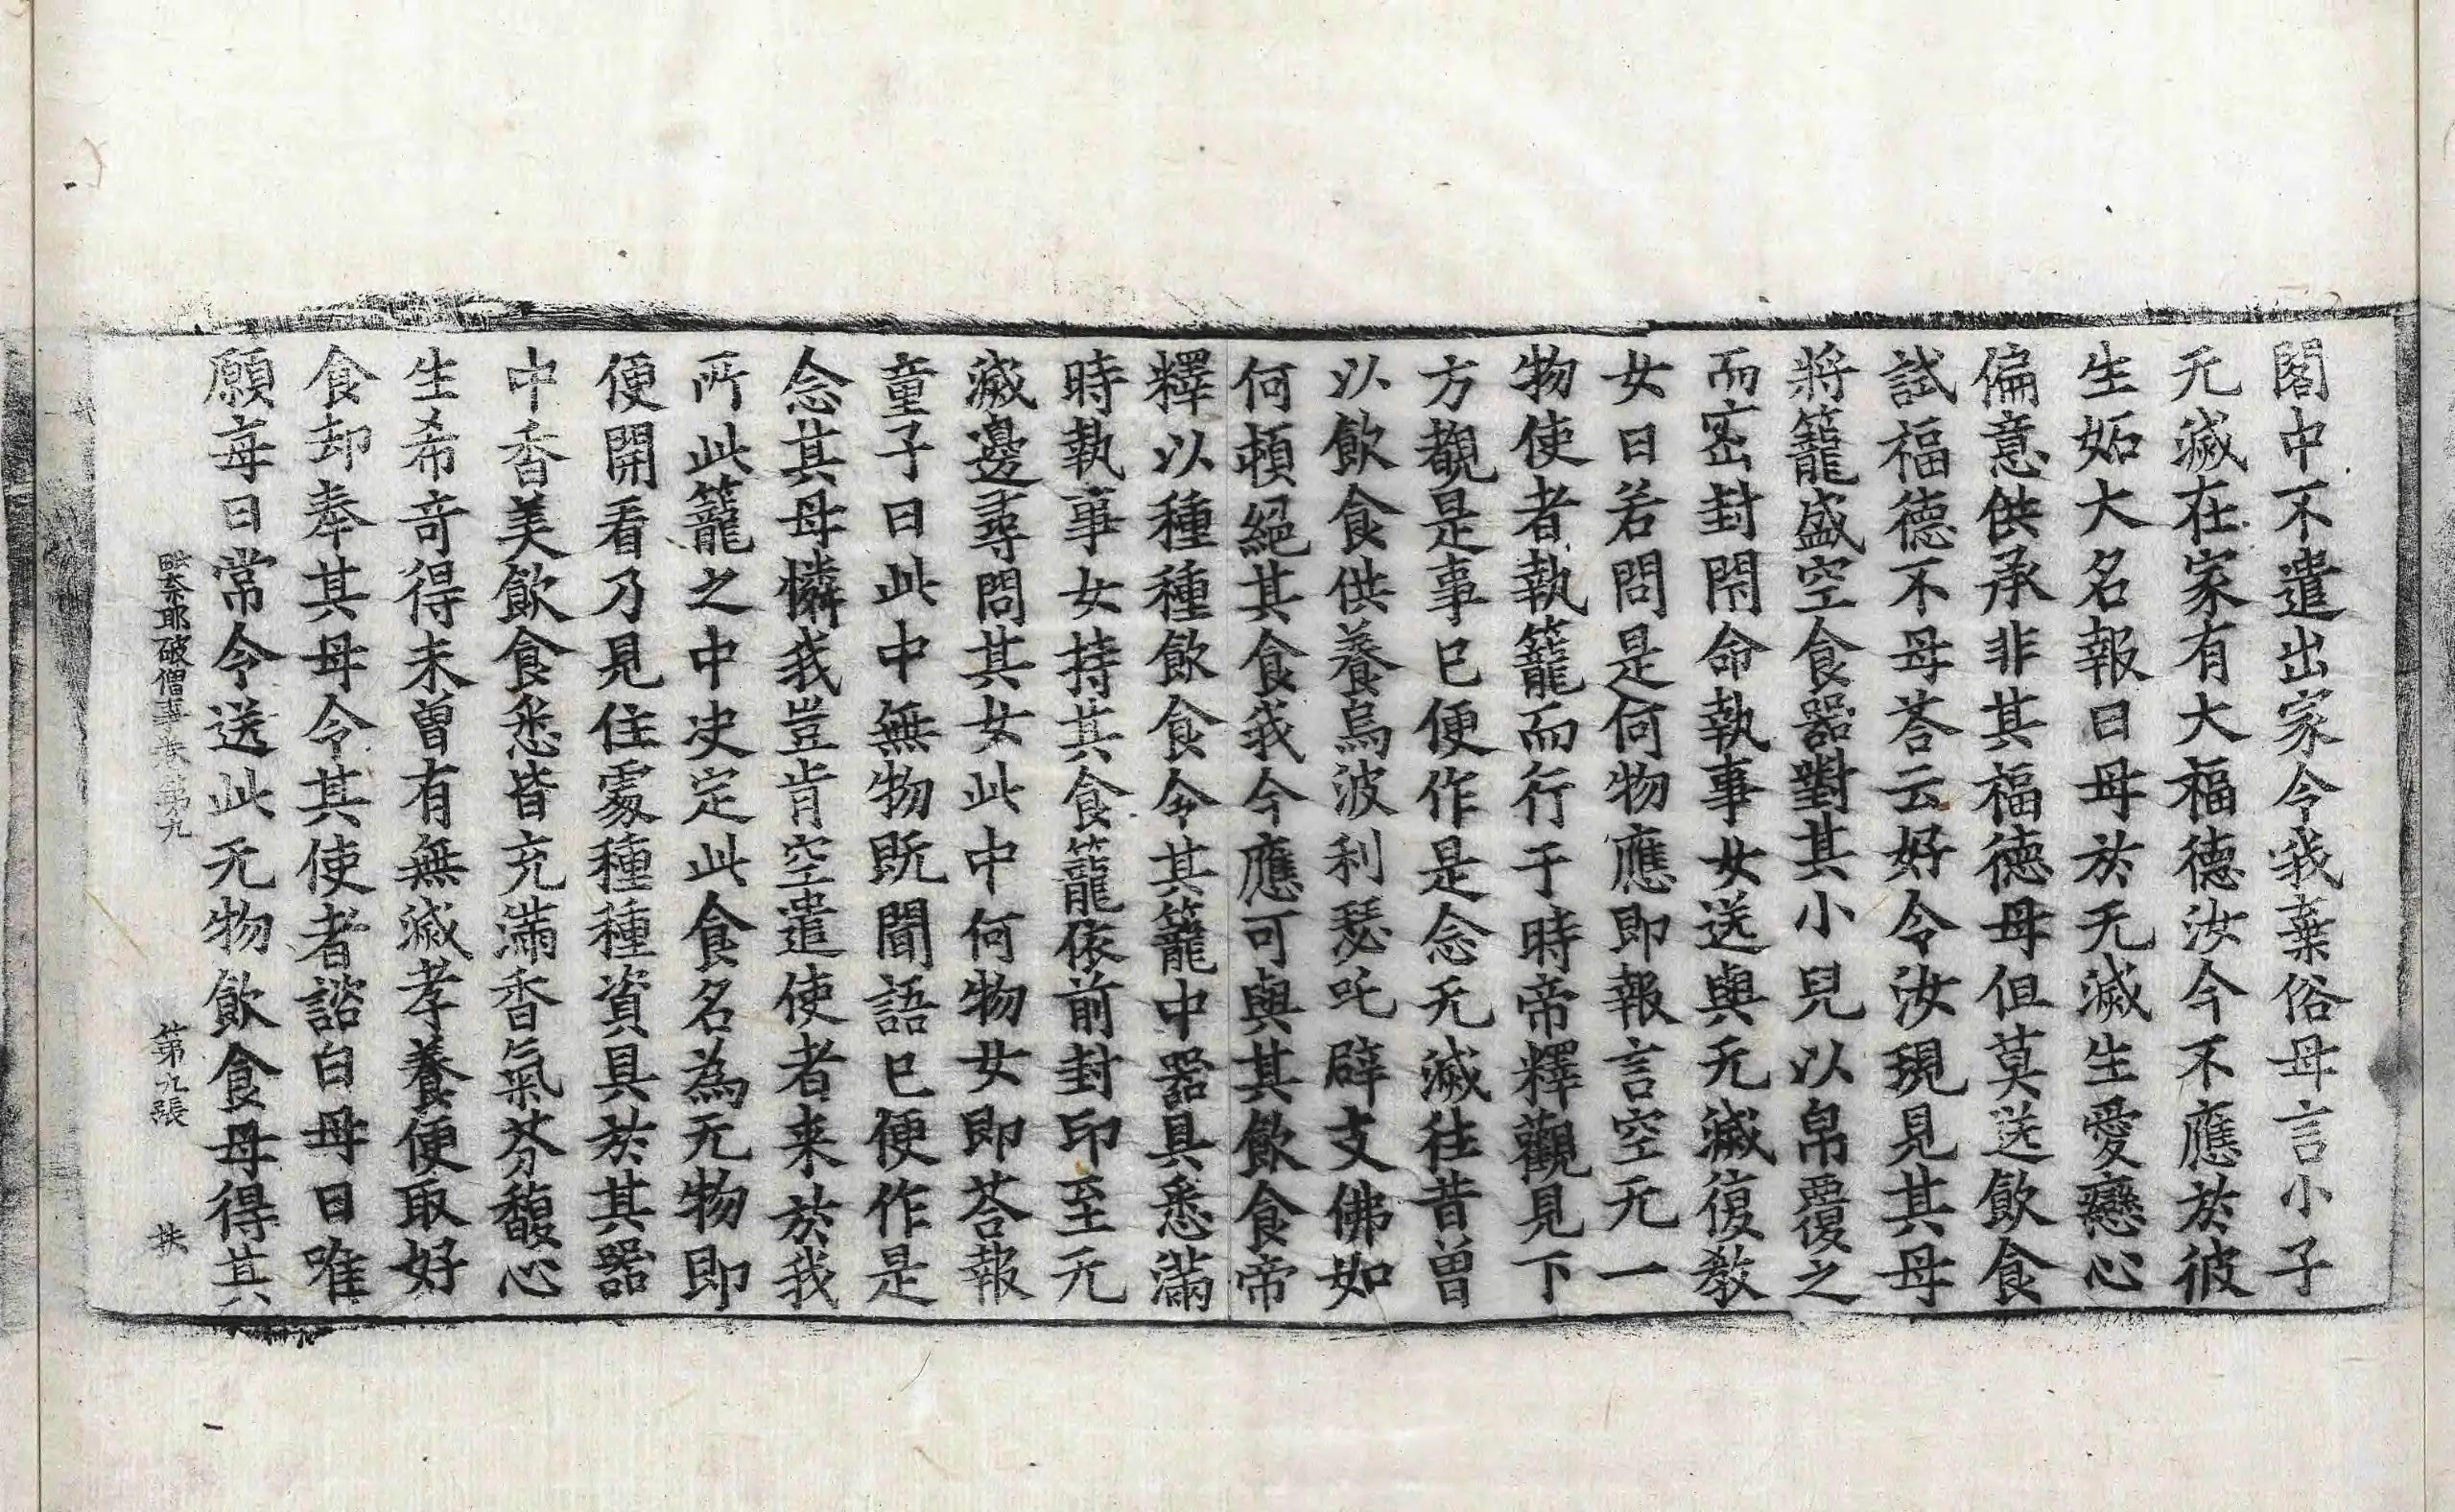 閣中不遣出家令我棄俗母言小子
无滅在家有大福德汝今不應於彼
生妬大名報曰母於无滅生愛戀心
偏意供承非其福德母但莫送飲食
試福德不母荅云好令汝現見其母
將籠盛空食器對其小兒以帛覆之
而密封閇命執事女送與无滅復教
女曰若問是何物應即報言空无一
物使者執籠而行于時帝釋觀見下
方覩是事已便作是念无滅往昔曾
以飲食供養烏波利瑟吒辟支佛如
何頓絕其食我今應可與其飲食帝
釋以種種飲食令其籠中器具悉滿
時執事女持其食籠依前封印至无
滅邊尋問其女此中何物女即荅報
童子曰此中無物既聞語已便作是
念其母憐我豈肯空遣使者来於我
所此籠之中決定此食名為无物即
便開看乃見住處種種資具於其器
中香美飲食悉皆充滿香氣芬馥心
生希奇得未曾有無滅孝養便取好
食却奉其母令其使者諮白母曰唯
願母曰常令送此无物飲食母得其
毗奈耶破僧事卷第九 第九張 扶